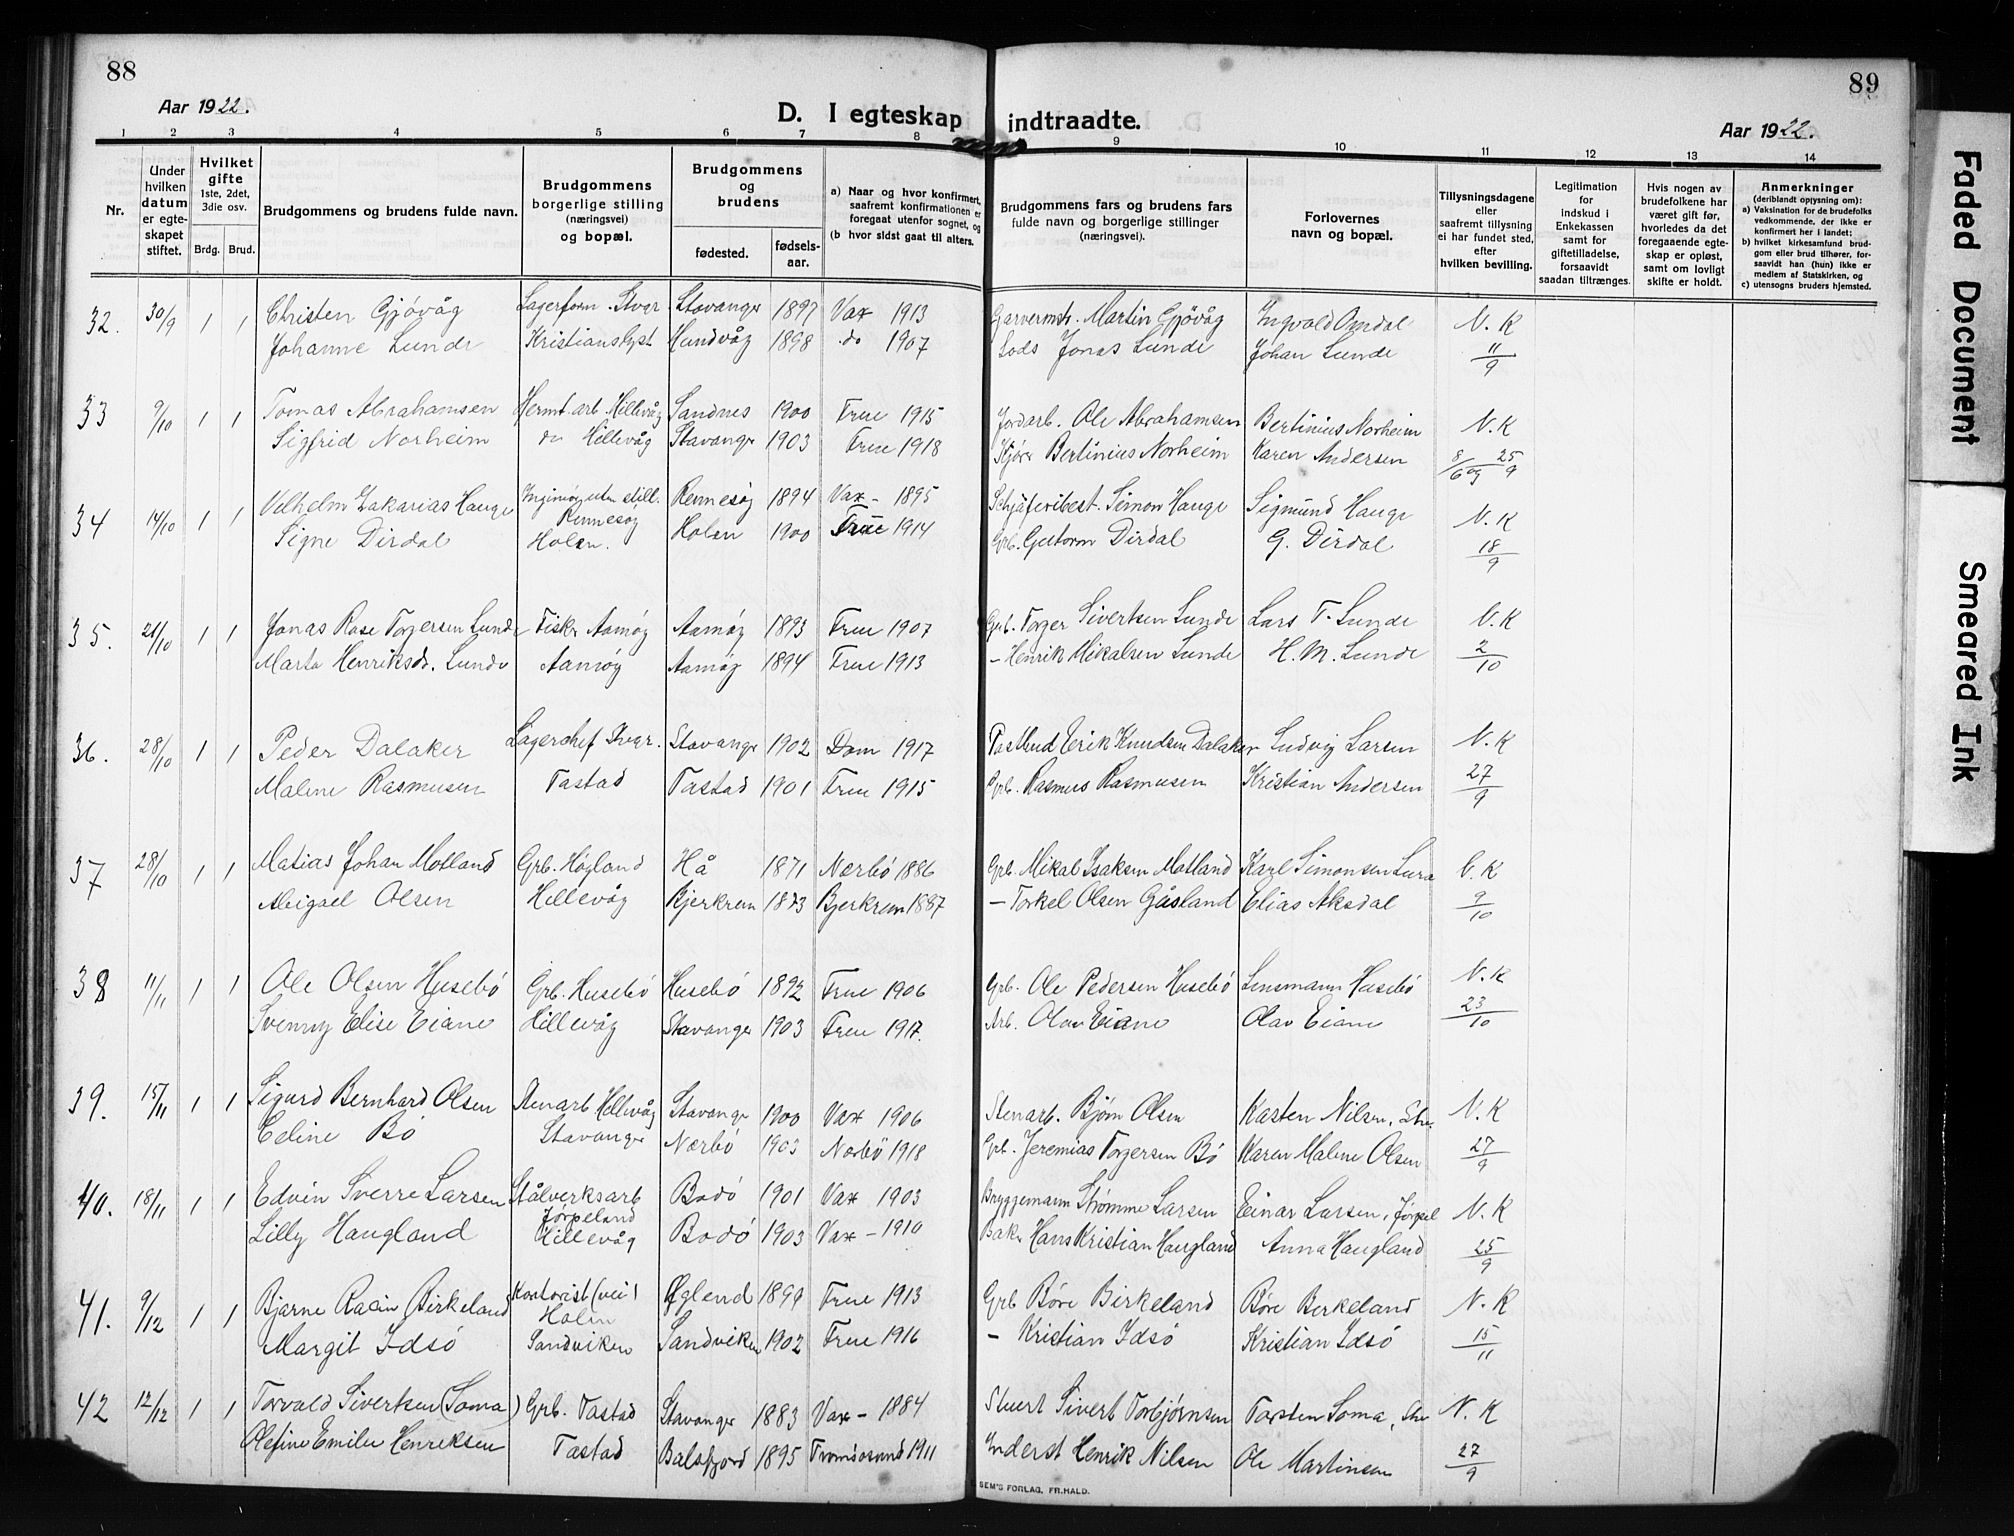 88
89
Aar 1922.
D. I egteskap indtraadte.
Aar 1922.
1 2 3 4 5 6 7 8 9 10 11 12 13 14
Nr.
Under hvilken datum er egteskapet stiftet.
Hvilket gifte 1ste, 2det, 3die osv.
Brdg. Brud.
Brudgommens og brudens fulde navn.
Brudgommens borgerlige stilling (næringsvei) og bopæl.
Brudgommens og brudens
fødested. fødselsaar.
a) Naar og hvor konfirmert, saafremt konfirmationen er foregaat utenfor sognet, og
(b hvor sidst gaat til alters.
Brudgommens fars og brudens fars fulde navn og borgerlige stillinger (næringsvei).
Forlovernes navn og bopæl.
Tillysningsdagene eller saafremt tillysning ei har fundet sted, efter hvilken bevilling.
Legitimation for indskud i Enkekassen samt for giftetilladelse, forsaavidt saadan tiltrænges.
Hvis nogen av brudefolkene har været gift før, hvorledes da det foregaaende egteskap er opløst, samt om lovligt skifte er holdt.
Anmerkninger (deriblandt oplysning om):
a) Vaksination for de brudefolks vedkommende, der ikke er konfirmert her i landet;
b) hvilket kirkesamfund brudgom eller brud tilhører, forsaavidt han (hun) ikke er medlem af Statskirken, og
c) utensogns bruders hjemsted.
32. 30/9 1 1 Christen Gjövåg Lagerform. Stvgr Stavanger 1897 Vax 1913 Garvermstr. Martin Gjövåg Ingvald Omdal N. K
Johanne Lunde Kristianslyst Hundvåg 1898 do 1907 Lods Jonas Lunde Johan Lunde 11/9
33 9/10 1 1 Tomas Abrahamsen Hermt. arb. Hillevåg Sandnes 1900 Frue 1915 Jordarb. Ole Abrahamsen Bertinius Norheim N. K
Sigfrid Norheim do Hillevåg Stavanger 1903 Frue 1918 Kjörer Bertinius Norheim Karen Andersen 8/6 og 25/9
34 14/10 1 1 Vilhelm Zakarias Hauge uten still. Rennesøy Rennesøy 1894 Vax - 1895 Simon Hauge Sigmund Hauge N. K
Signe Dirdal Holen. Holen 1900 Frue 1914 Grb. Gutorm Dirdal G. Dirdal 18/9
35. 21/10 1 1 Jonas Rose Torgersen Lunde Fisker Aamøy Aamøy 1893 Frue 1907 Grb. Torger Sivertsen Lunde Lars T. Lunde N. K
Marta Henriksdr. Lunde Aamøy Aamøy 1894 Frue 1913 - Henrik Mikalsen Lunde H. M. Lunde 2/10
36. 28/10 1 1 Peder Dalaker Lagerchef Stvgr. Stavanger 1902 Dom 1917 Postbud Erik Knudsen Dalaker Ludvig Larsen N. K
Malene Rasmussen Tastad Tastad 1901 Frue 1915 Grb. Rasmus Rasmussen Kristian Andersen 27/9
37 28/10 1 1 Matias Johan Motland Grb. Högland Hå 1871 Nærbö 1886 Grb. Mikal Isaksen Motland Karl Simonsen Lura N. K
Abigael Olsen Hillevåg Bjerkrem 1873 Bjerkrem 1887 - Torkel Olsen Gåsland Elias Aksdal 9/10
38 11/11 1 1 Ole Olsen Husebö Grb. Husebö Husebö 1892 Frue 1906 Grb. Ole Pedersen Husebö Lensmann Husebö N. K
Svenny Elise Eiane Hillevåg Stavanger 1903 Frue 1917. Arb. Olav Eiane Olav Eiane 23/10
39. 15/11 1 1 Sigurd Bernhard Olsen Stenarb Hillevåg Stavanger 1900 Vax 1906 Stenarb. Bjørn Olsen Karsten Nilsen, N. K
Celine Bö Stavanger Nærbö 1903 Nærbö 1918 Grb. Jeremias Torgersen Bö Karen Malene Olsen 27/9
40. 18/11 1 1 Edvin Sverre Larsen Stålverksarb Jørpeland Bodö 1901 Vax 1903 Bryggemann Strömme Larsen Einar Larsen, Jørpel N. K
Lilly Haugland Hillevåg Bodö 1903 Vax - 1910 Baker Hans Kristian Haugland Anna Haugland 25/9
41. 9/12 1 1 Bjarne Racin Birkeland Kontorist Holen Øglend 1899 Frue 1913 Grb Böre Birkeland Böre Berkeland N. K
Margit Idsö Sandviken Sandviken 1902 Frue 1916 - Kristian Idsö Kristian Idsö 15/11
42 12/12 1 1 Torvald Sivertsen (Soma) Grb. Tastad Stavanger 1883 Vax - 1884 Stuert Sivert Torbjørnsen Torsten Soma, N. K
Olefine Emilie Henriksen Tastad Balsfjord 1895 Tromösund 1911 Inderst Henrik Nilsen Ole Martinsen 27/9
SEM'S FORLAG, FR.HALD.
Faded Document
Smeared Ink